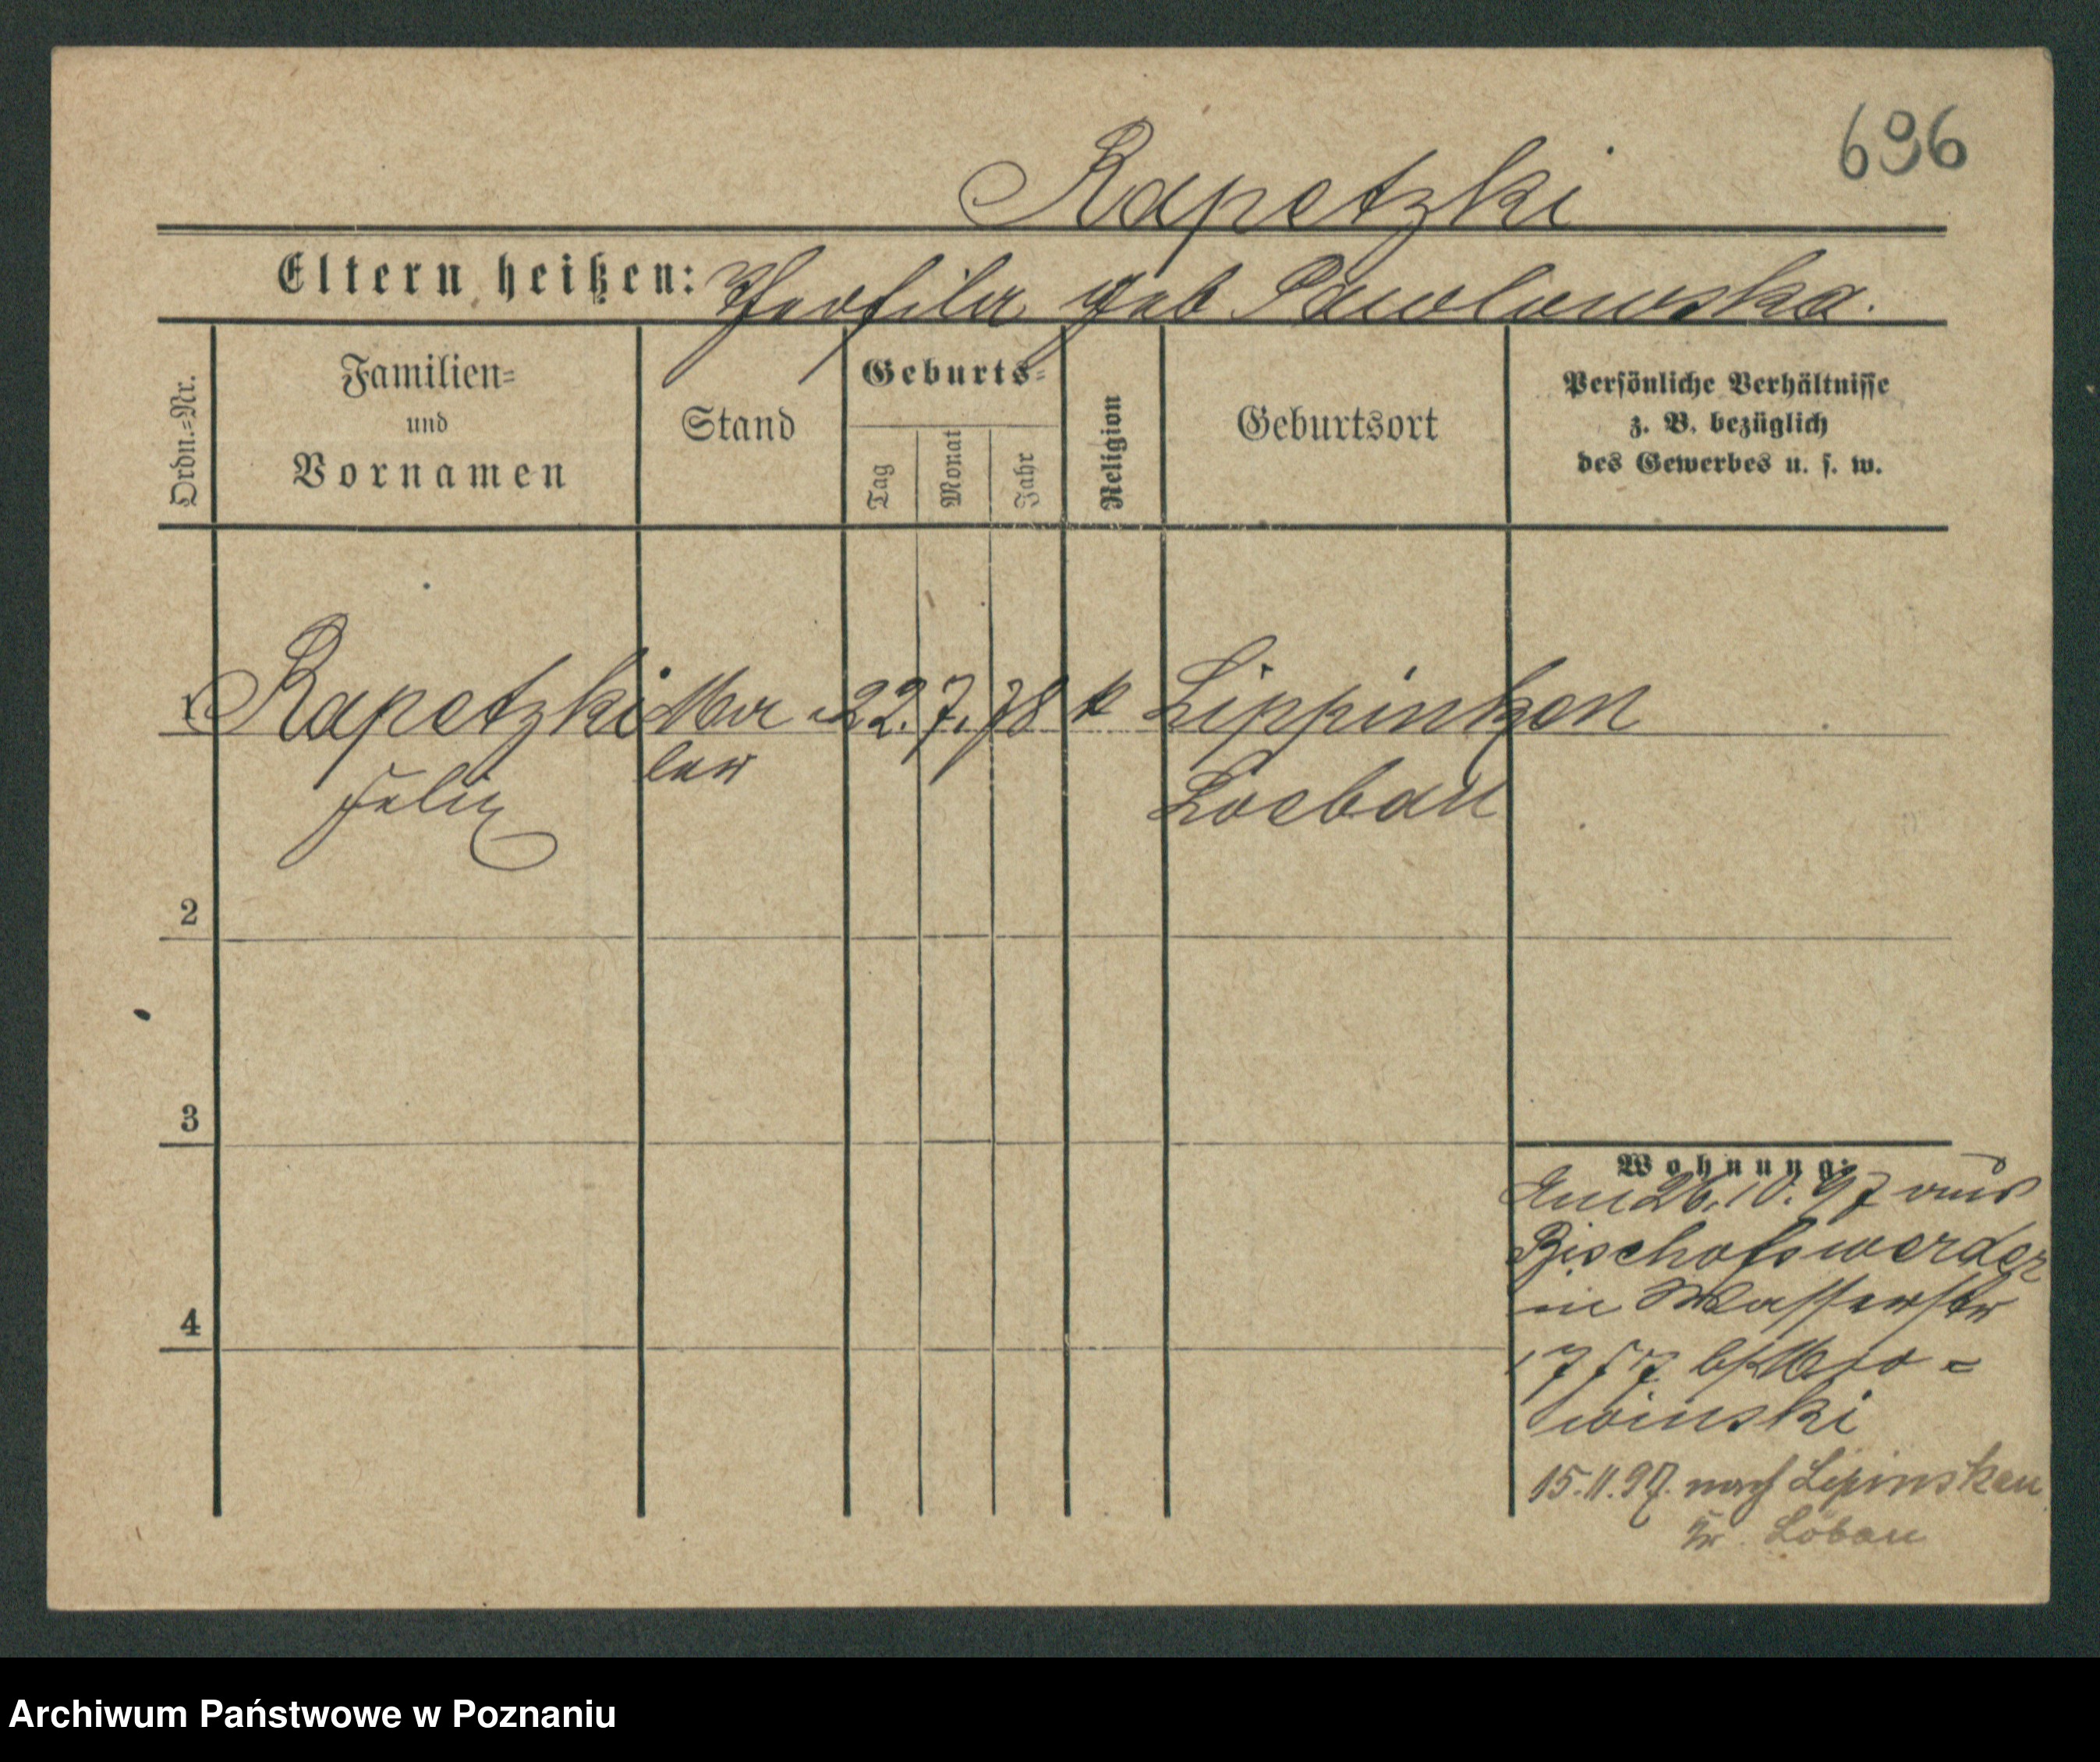 696
Rapetzki
Eltern heißen: Theofila geb Pawlowska.
Ordn.=Nr.
Familien=
und
Vornamen
Stand
Geburts=
Tag
Monat
Jahr
Religion
Geburtsort
Persönliche Verhältnisse
z. B. bezüglich
des Gewerbes u. s. w.
1 Rapetzki Ma 22. 7. 78 k Lippinken
ler
Felix Loebau
2
3
4
Wohnung:
Am 26. 10. 97 aus
Bischofswerder
in Wasserstr
winski
15. 11. 97. nach Lipinsken
Kr. Löbau
Archiwum Państwowe w Poznaniu